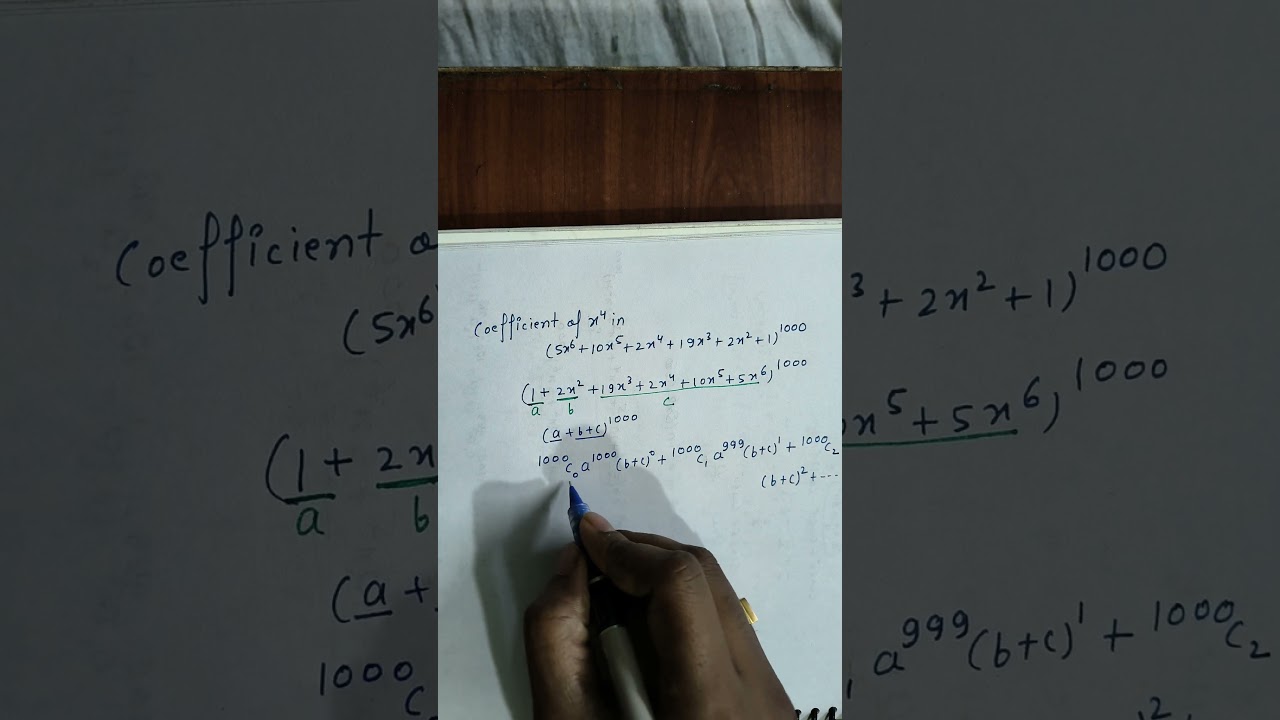 Coefficient of x⁴ in
(5x⁶+10x⁵+2x⁴+19x³+2x²+1)¹⁰⁰⁰
(1+2x²+19x³+2x⁴+10x⁵+5x⁶)¹⁰⁰⁰
a b c
(a+b+c)¹⁰⁰⁰
¹⁰⁰⁰C₀a¹⁰⁰⁰(b+c)⁰+¹⁰⁰⁰C₁a⁹⁹⁹(b+c)¹+¹⁰⁰⁰C₂
(b+c)²+----